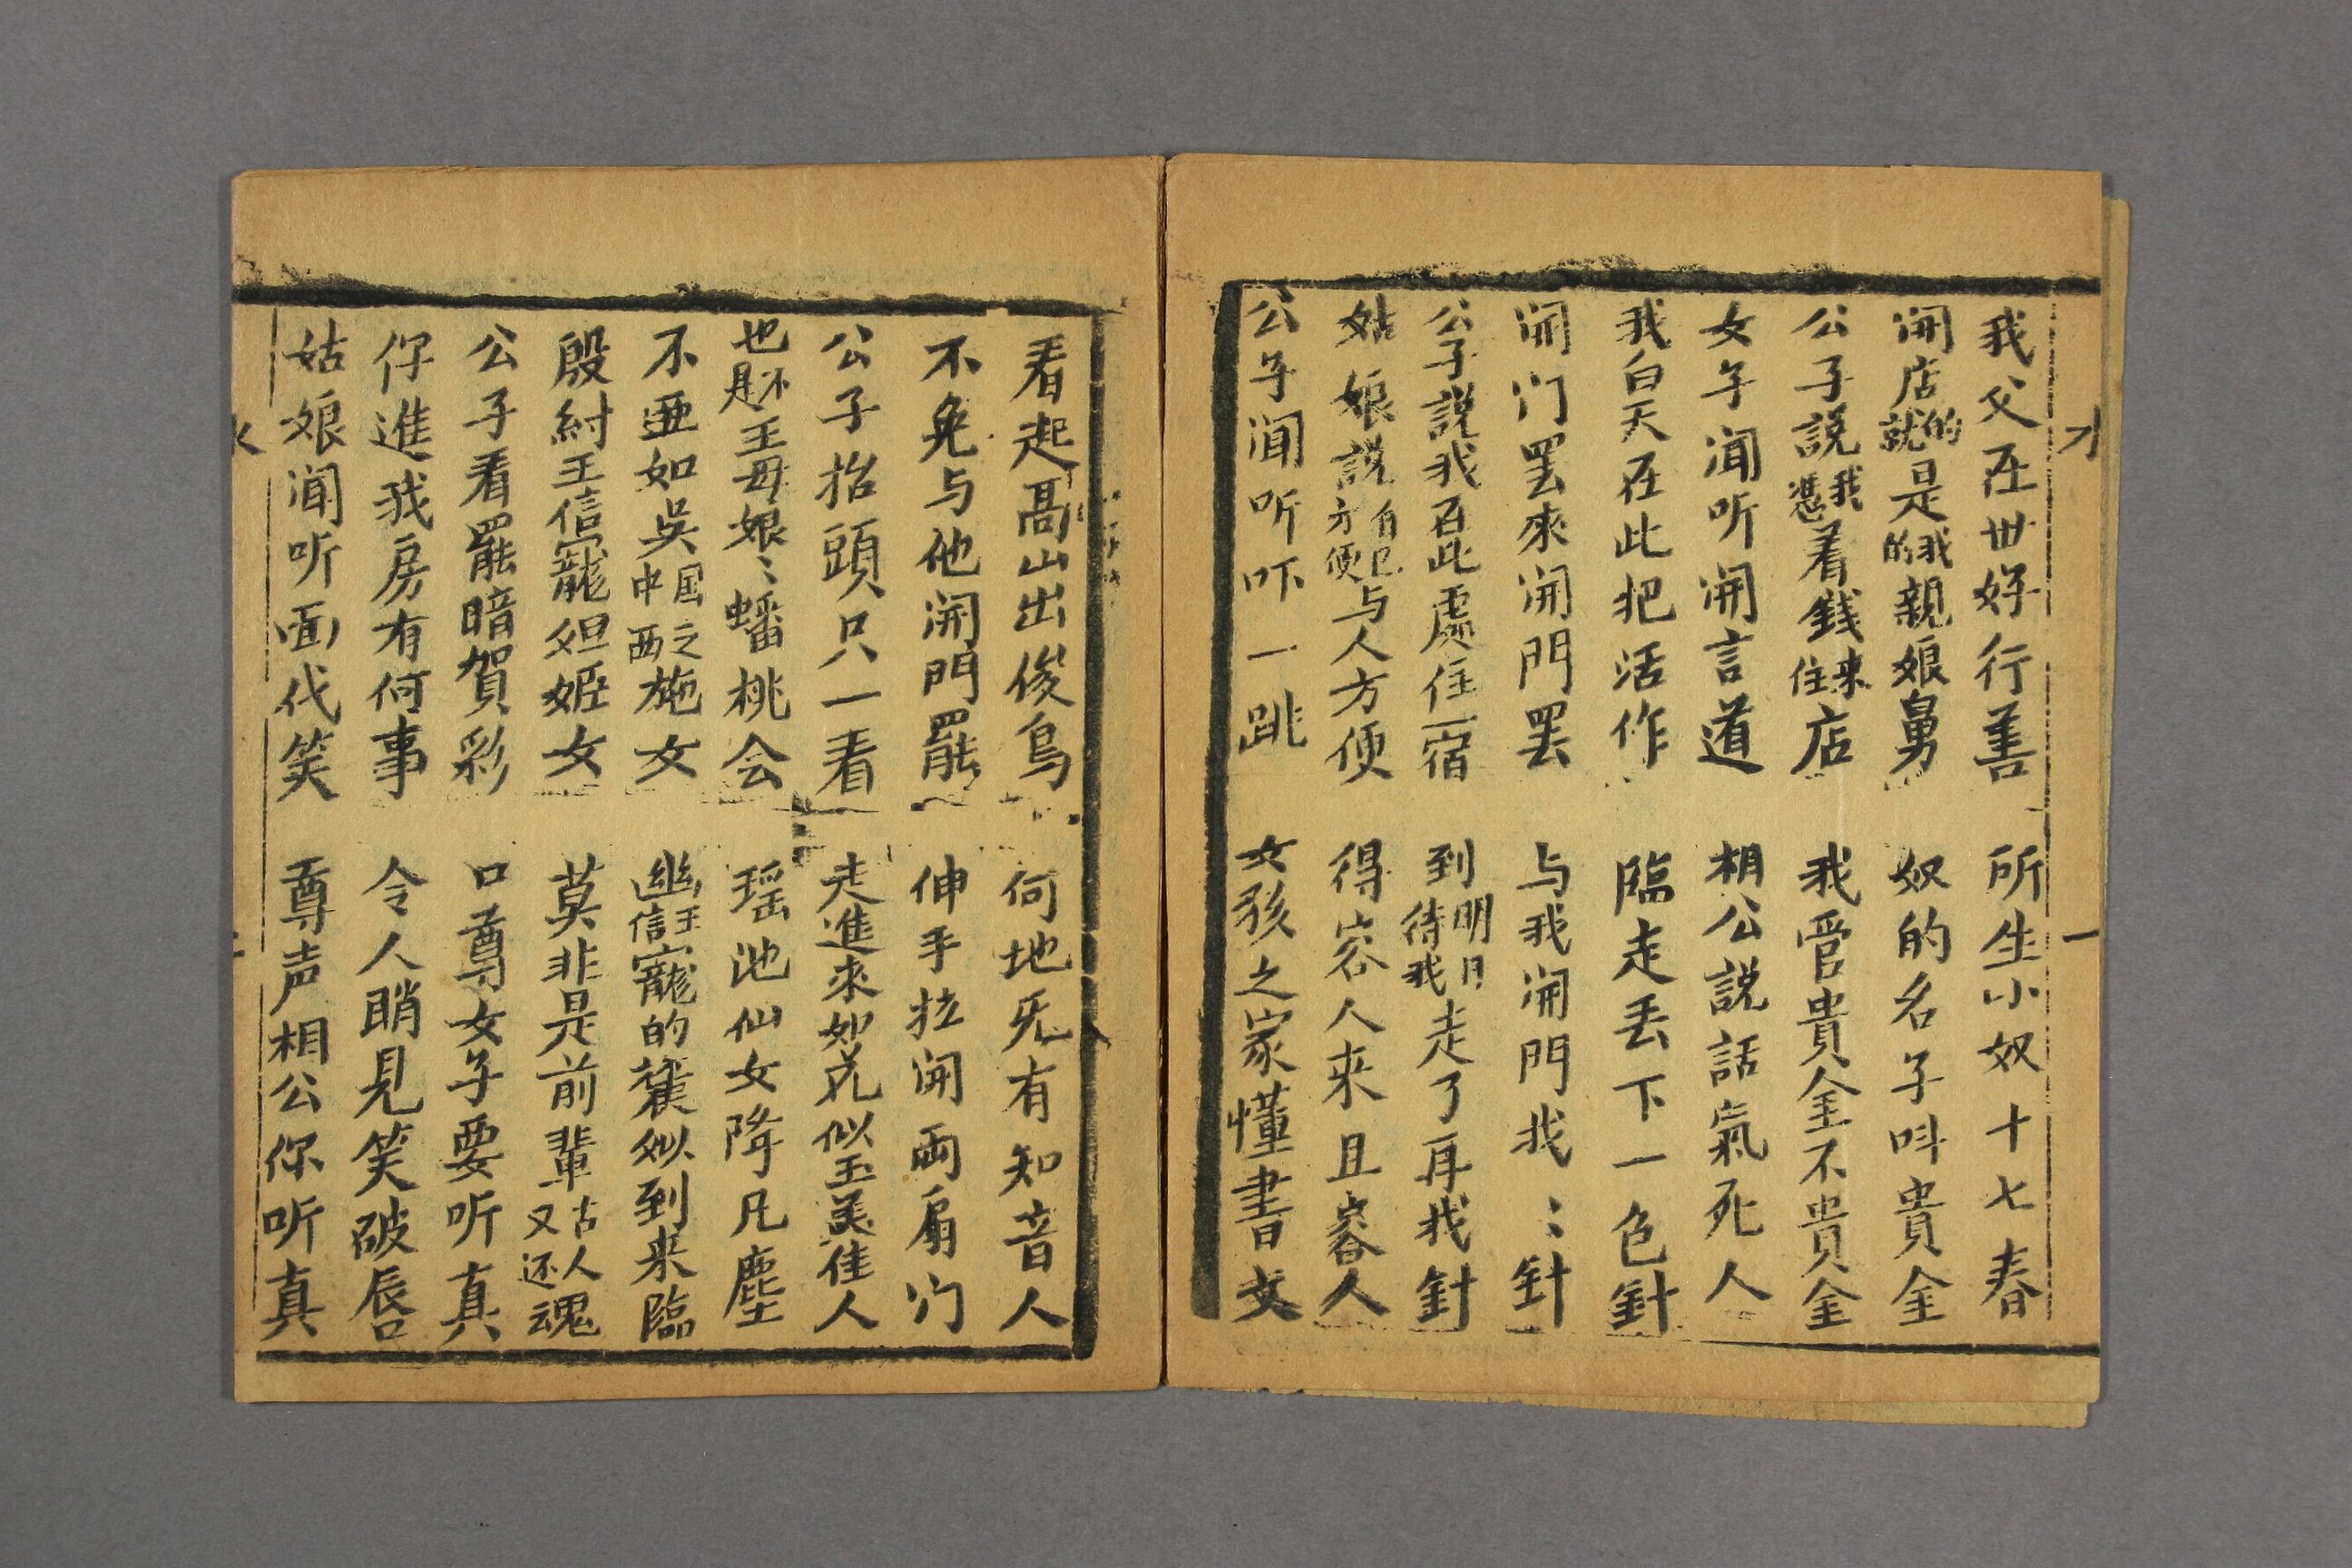 我父在世好行善 所生小奴十七春
開店的就是我的親娘舅 奴的名子呌貴金
公子説我憑着錢来住店 我管貴金不貴金
女子聞听開言道 相公説話氣死人
我白天在此把活作 臨走丢下一色針
開门罢來開門罢 与我開門找〻針
公子説我在此處住一宿 到明日待我走了再找針
姑娘説自己方便与人方便 得容人来且容人
公子聞听吓一跳 女孩之家懂書文
看起高山出俊鳥 何地旡有知音人
不免与他開門罷 伸手拉開両扇门
公子抬頭只一看 走進來如花似玉美佳人
也不是王母娘〻蟠桃会 瑶池仙女降凡塵
不亜如吳国中之西施女 幽王信寵的襃姒到来臨
殷紂王信寵妲姬女 莫非是前輩古人又还魂
公子看罷暗賀彩 口尊女子要听真
伢進我房有何事 令人瞧見笑破唇
姑娘聞听面代笑 尊声相公你听真